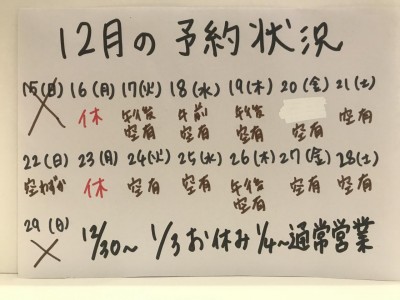 12月の予約状況
15(日) 16(月) 17(火) 18(水) 19(木) 20(金) 21(土)
休 午後空有 午前空有 午後空有 空有 空有
22(日) 23(月) 24(火) 25(水) 26(木) 27(金) 28(土)
空わずか 休 空有 空有 午後空有 空有 空有
29(日) 12/30〜1/3お休み 1/4〜通常営業